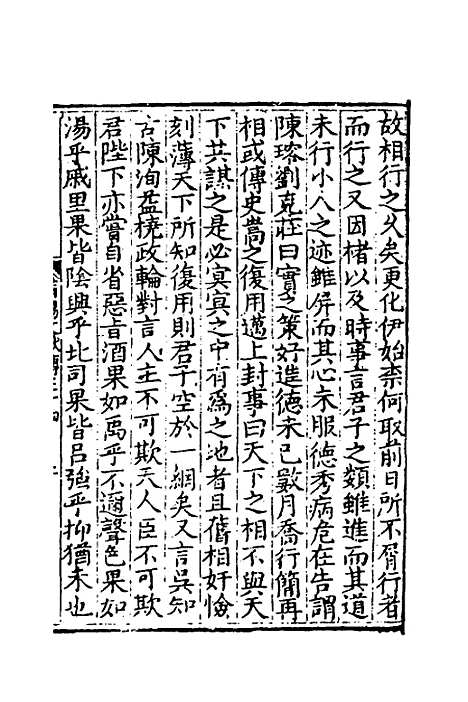 故相行之久矣更化伊始柰何取前日所不屑行者
而行之又因楮以及時事言君子之𩔖雖進而其道
未行小人之迹雖屏而其心未服德秀病危在告謂
陳瑢劉克莊曰實之䇿好進德未已數月喬行簡再
相或傳史嵩之復用邁上封事曰天下之相不與天
下共謀之是必㝠㝠之中有爲之地者且舊相奸憸
刻薄天下所知復用則君子空於一網矣又言吳知
古陳洵益橈政輪對言人主不可欺天人臣不可欺
君陛下亦嘗自省惡㫖酒果如禹乎不邇聲色果如
湯乎戚里果皆陰興乎北司果皆吕强乎抑猶未也